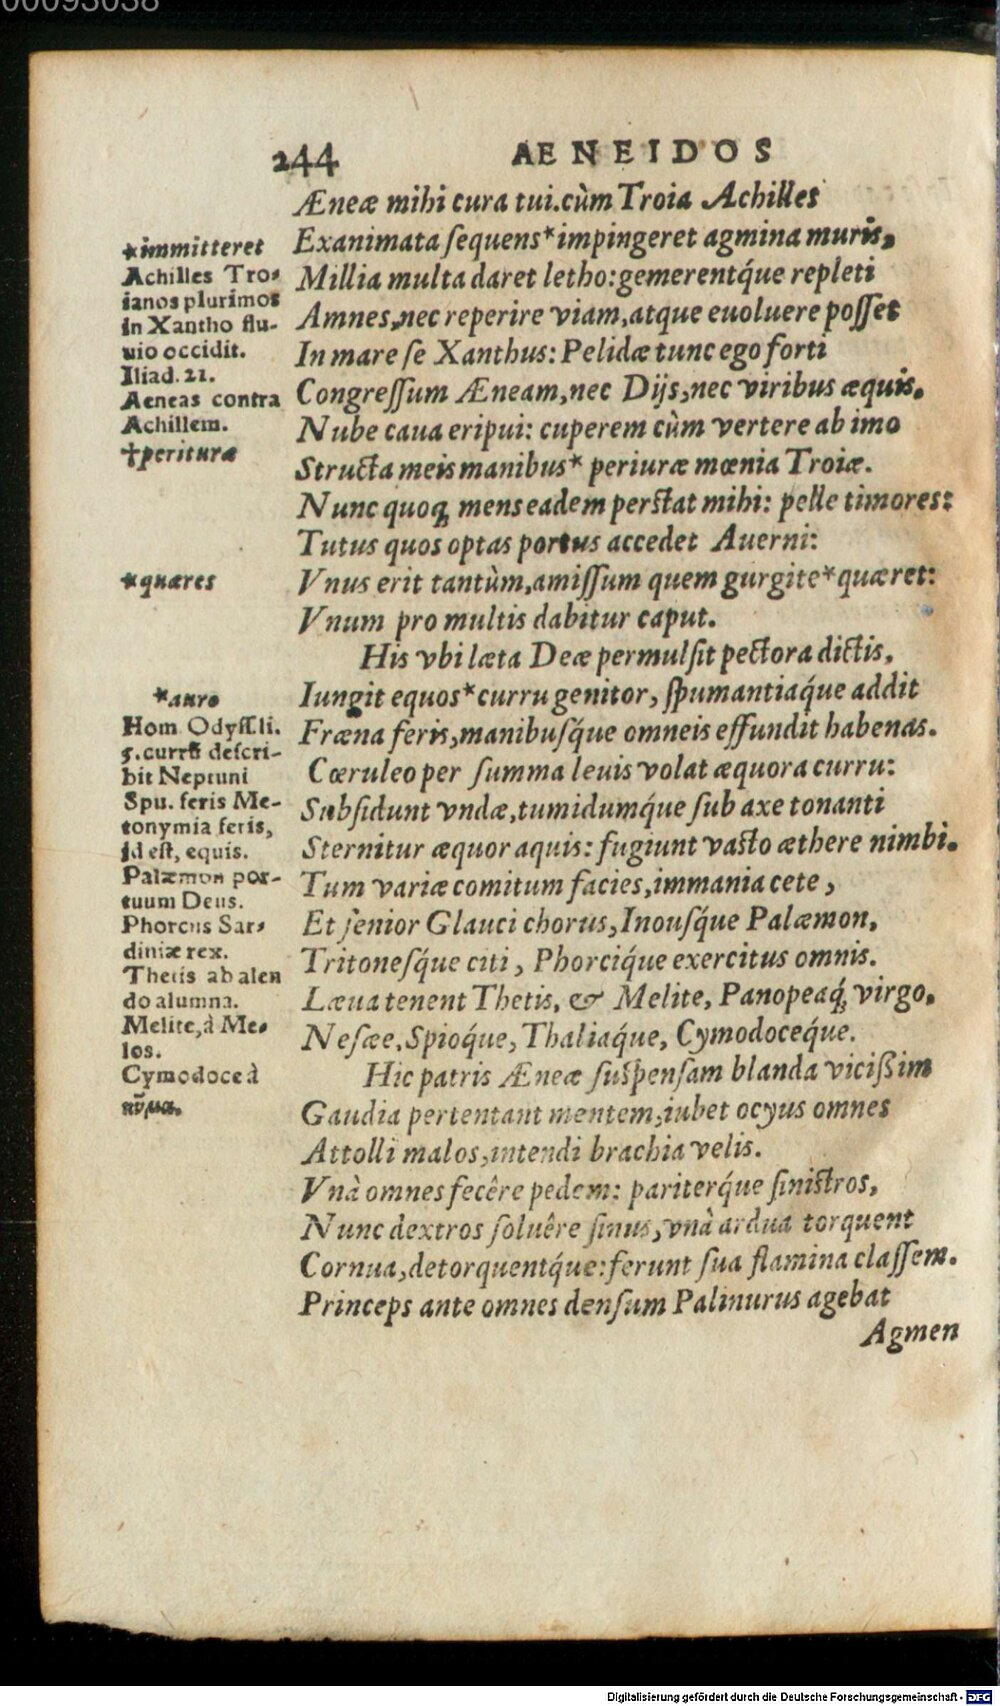 00093038
244 AENEIDOS
Æneæ mihi cura tui.cùm Troia Achilles
Exanimata ſequens*impingeret agmina muris,
Millia multa daret letho:gemerentq́ue repleti
Amnes,nec reperire viam,atque euoluere poſſet
In mare ſe Xanthus: Pelidæ tunc ego forti
Congreſſum Æneam,nec Dijs,nec viribus æquis.
Nube caua eripui: cuperem cùm vertere ab imo
Structa meis manibus* periuræ mœnia Troiæ.
Nunc quoq; mens eadem perstat mihi: pelle timores:
Tutus quos optas portus accedet Auerni:
Vnus erit tantùm,amiſſum quem gurgite*quæret:
Vnum pro multis dabitur caput.
His vbi læta Deæ permulſit pectora dictis,
Iungit equos*curru genitor, ſpumantiaq́ue addit
Fræna feris,manibuſq́ue omneis effundit habenas.
Cœruleo per ſumma leuis volat æquora curru:
Subſidunt vndæ,tumidumq́ue ſub axe tonanti
Sternitur æquor aquis: fugiunt vasto æthere nimbi.
Tum variæ comitum facies,immania cete,
Et ſenior Glauci chorus,Inouſq́ue Palæmon,
Tritoneſq́ue citi, Phorciq́ue exercitus omnis.
Læua tenent Thetis, & Melite, Panopeaq́; virgo,
Neſæe,Spioq́ue, Thaliaq́ue, Cymodoceq́ue.
Hic patris Æneæ ſuſpenſam blanda vicißim
Gaudia pertentant mentem,iubet ocyus omnes
Attolli malos,intendi brachia velis.
Vnà omnes fecêre pedem: pariterq́ue ſinistros,
Nunc dextros ſoluêre ſinus,vnà ardua torquent
Cornua,detorquentq́ue:ferunt ſua flamina claſſem.
Princeps ante omnes denſum Palinurus agebat
Agmen
*immitteret
Achilles Tro-
ianos plurimos
in Xantho flu-
uio occidit.
Iliad.21.
Aeneas contra
Achillem.
†perituræ
*quæres
*auro
Hom Odyſſ.li.
5.currũ deſcri-
bit Neptuni
Spu. feris Me-
tonymia feris,
id eſt, equis.
Palæmon por-
tuum Deus.
Phorcus Sar-
diniæ rex.
Thetis ab alen
do alumna.
Melite,à Me-
los.
Cymodoce à
κῦμα.
Digitalisierung gefördert durch die Deutsche Forschungsgemeinschaft - DFG